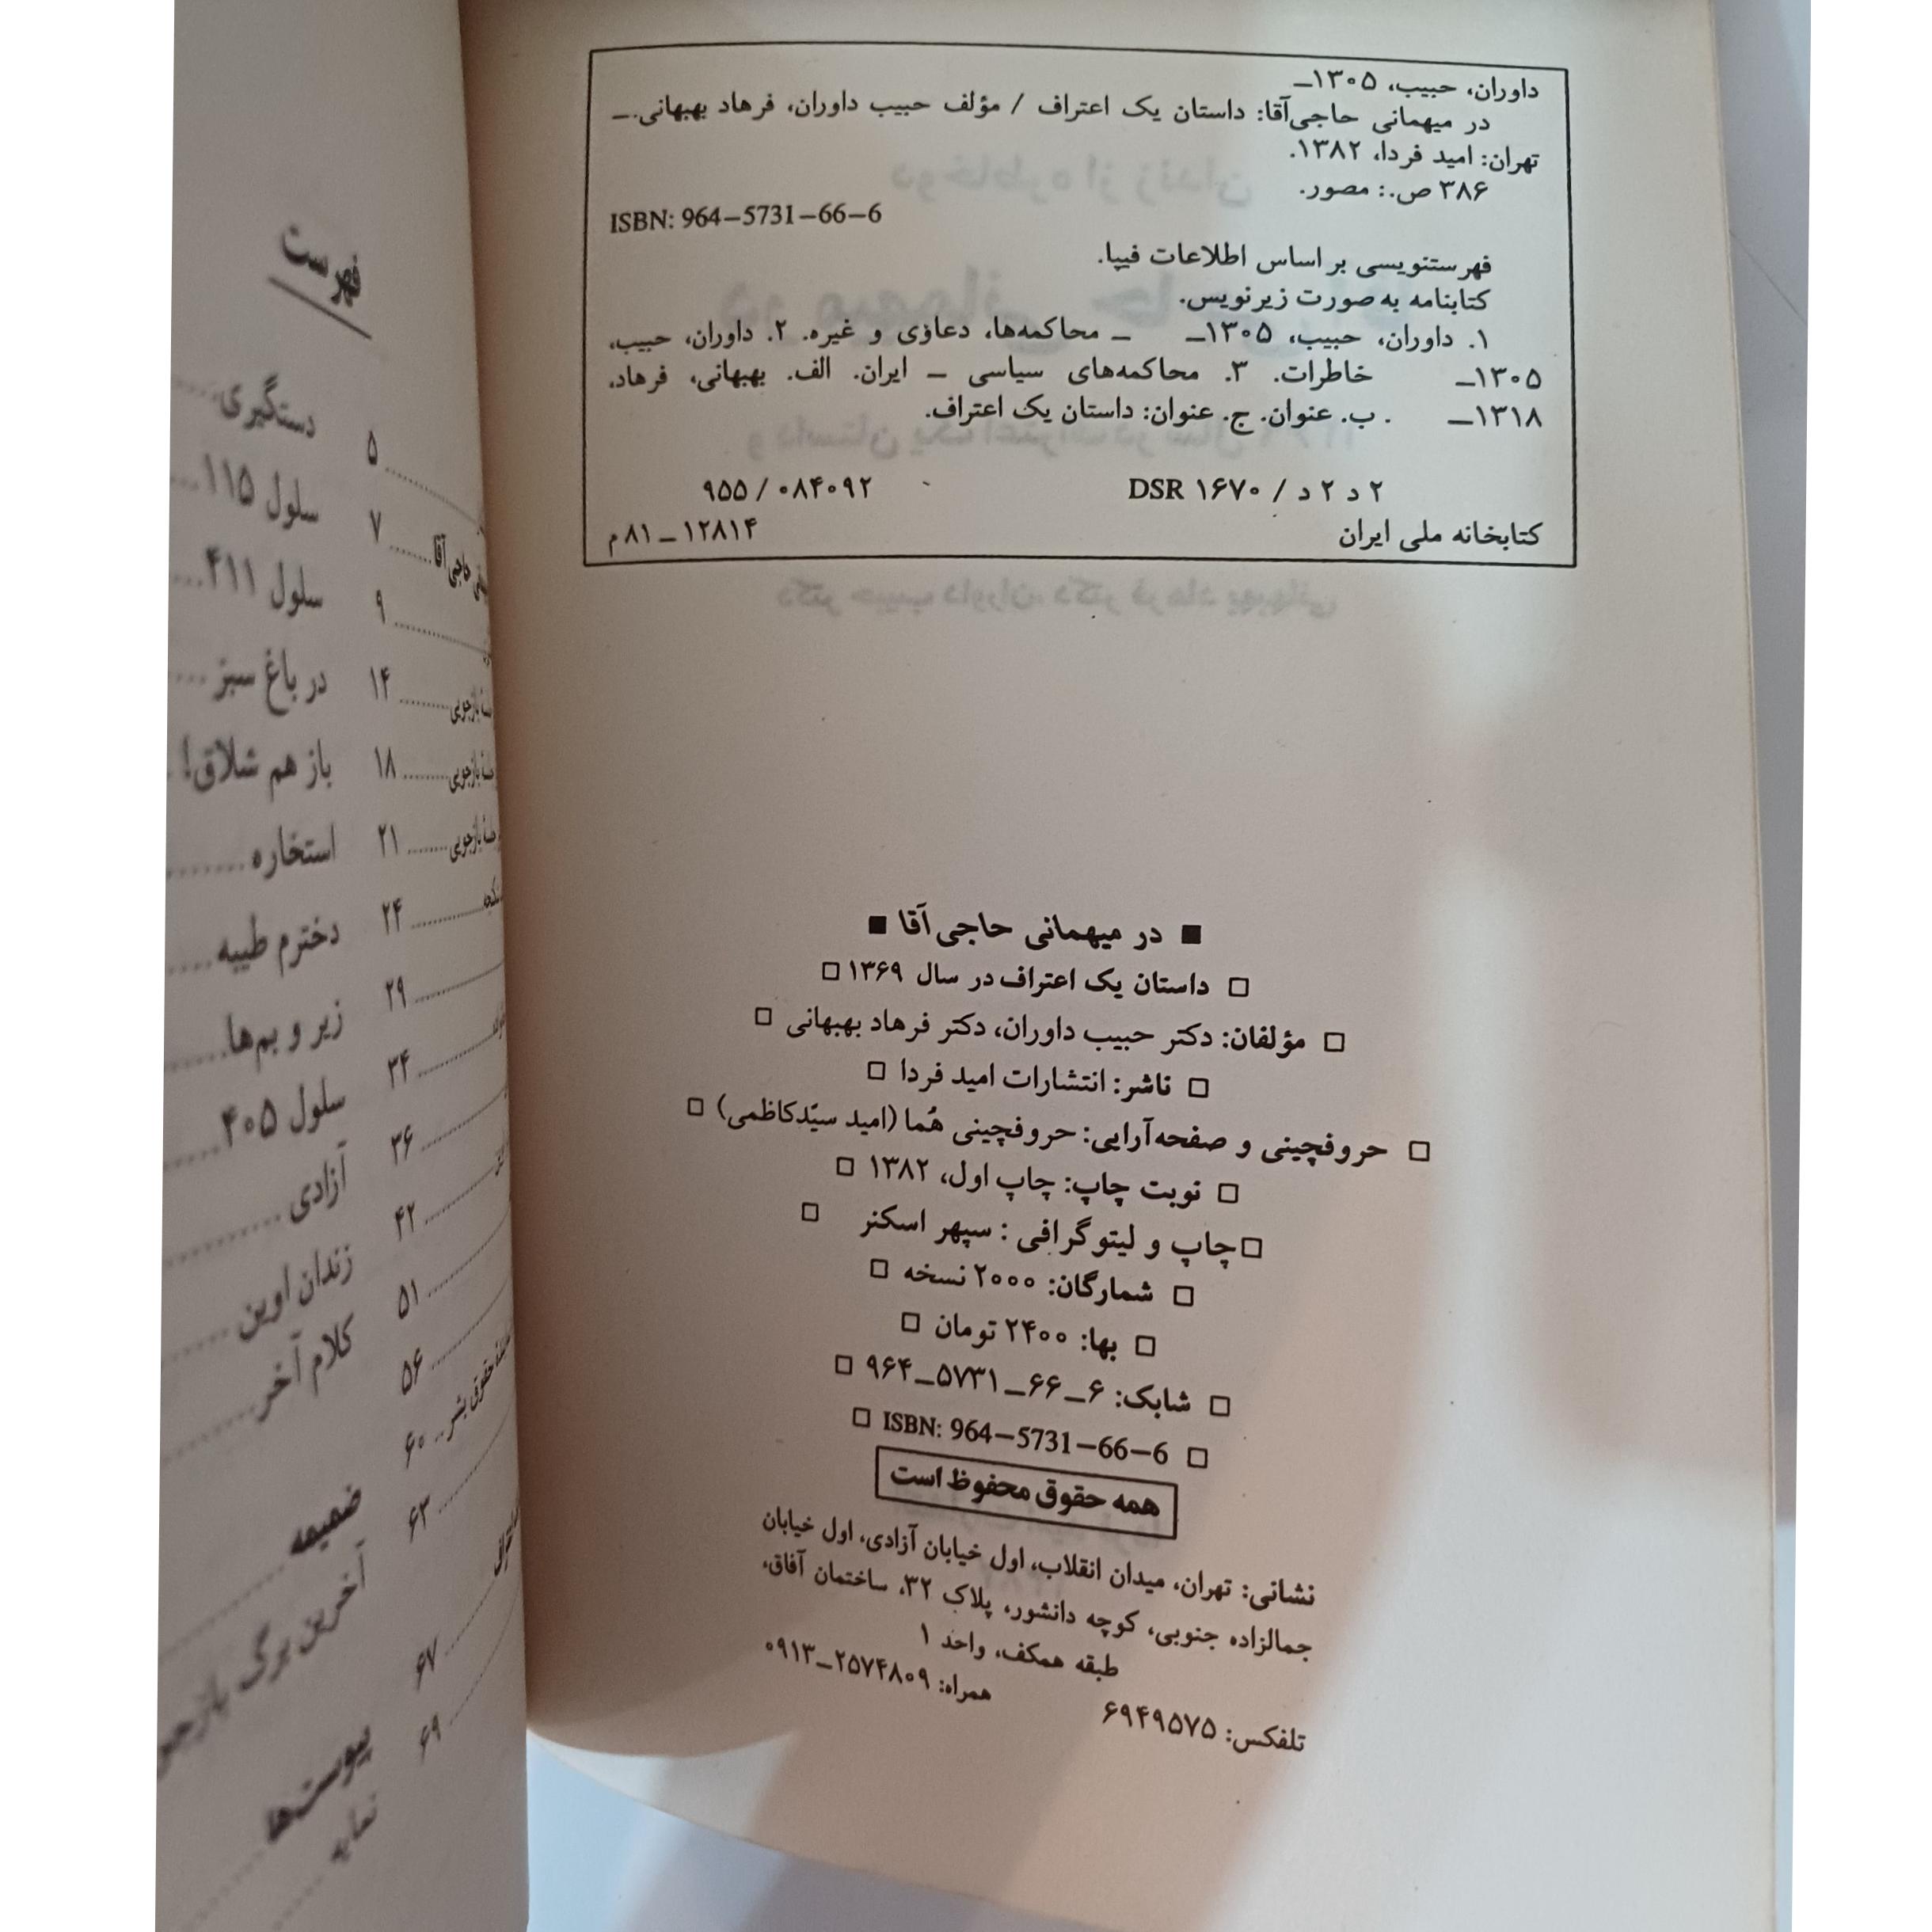 داوران، حبیب، ۱۳۰۵ـ
در میهمانی حاجی‌آقا: داستان یک اعتراف / مؤلف حبیب داوران، فرهاد بهبهانی.ـ
تهران: امید فردا، ۱۳۸۲.
۳۸۶ ص.: مصور.
ISBN: 964–5731–66–6
فهرستنویسی بر اساس اطلاعات فیپا.
کتابنامه به صورت زیرنویس.
۱. داوران، حبیب، ۱۳۰۵ـ ـ محاکمه‌ها، دعاوی و غیره. ۲. داوران، حبیب،
۱۳۰۵ـ خاطرات. ۳. محاکمه‌های سیاسی ـ ایران. الف. بهبهانی، فرهاد،
۱۳۱۸ـ . ب. عنوان. ج. عنوان: داستان یک اعتراف.
۲ د ۲ د / DSR ۱۶۷۰ ۹۵۵ / ۰۸۴۰۹۲
کتابخانه ملی ایران ۱۲۸۱۴ ـ ۸۱ م
■ در میهمانی حاجی‌آقا ■
□ داستان یک اعتراف در سال ۱۳۶۹ □
□ مؤلفان: دکتر حبیب داوران، دکتر فرهاد بهبهانی □
□ ناشر: انتشارات امید فردا □
□ حروفچینی و صفحه‌آرایی: حروفچینی هُما (امید سیّدکاظمی) □
□ نوبت چاپ: چاپ اول، ۱۳۸۲ □
□ چاپ و لیتوگرافی : سپهر اسکنر □
□ شمارگان: ۲۰۰۰ نسخه □
□ بها: ۲۴۰۰ تومان □
□ شابک: ۶ـ۶۶ـ۵۷۳۱ـ۹۶۴ □
□ ISBN: 964–5731–66–6 □
همه حقوق محفوظ است
نشانی: تهران، میدان انقلاب، اول خیابان آزادی، اول خیابان
جمالزاده جنوبی، کوچه دانشور، پلاک ۳۲، ساختمان آفاق،
طبقه همکف، واحد ۱
تلفکس: ۶۹۴۹۵۷۵ همراه: ۲۵۷۴۸۰۹ـ۰۹۱۳
فهرست
۵
حاجی‌آقا ۷
۹
بازجویی ۱۴
بازجویی ۱۸
بازجویی ۲۱
۲۴
۲۹
۳۴
۳۶
۴۲
۵۱
۵۶
حقوق بشر ۶۰
۶۳
۶۷
۶۹
دستگیری
سلول ۱۱۵
سلول ۴۱۱
در باغ سبز
باز هم شلاق!
استخاره
دخترم طیبه
زیر و بم‌ها
سلول ۴۰۵
آزادی
زندان اوین
کلام آخر
ضمیمه
آخرین برگ
پیوست‌ها